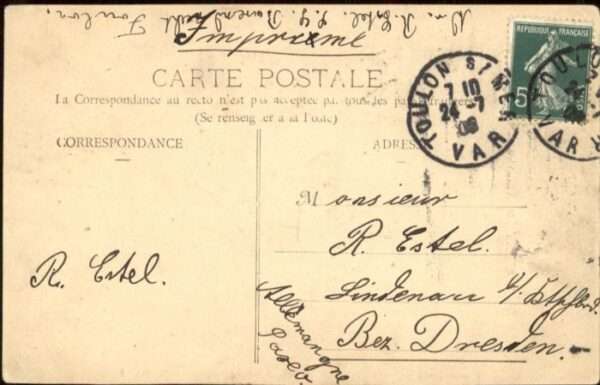 R. Estel.
Toulon,
Imprimé
REPUBLIQUE FRANÇAISE
5
CARTE POSTALE
La Correspondance au recto n'est pas acceptée par tous les pays étrangers
(Se renseigner à la Poste)
TOULON S/MER
7 10
24-7
08
VAR
TOULON
VAR
CORRESPONDANCE
ADRES
Monsieur
R. Estel.
Lindenau
Bez. Dresden.
R. Estel.
Allemangne